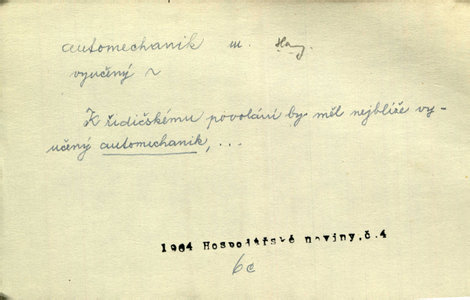 automechanik m.
vyučený ~
K řidičskému povolání by měl nejblíže vy-
učený automechanik, ...
1964 Hospodářské noviny, č.4
6c